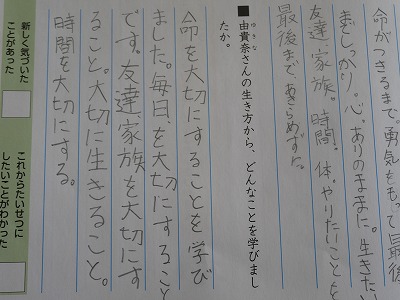 命がつきるまで。勇気をもって最後
まどしっかり。心。ありのままに。生きたい
友達。家族。時間。体。やりたいことを
最後まであきらめずに。
■由貴奈さんの生き方から、どんなことを学びまし
ゆきな
たか。
命を大切にすることを学び
ました。毎日、を大切にすること
です。友達家族を大切にす
ること。大切に生きること。
時間を大切にする。
新しく気づいた
ことがあった
これからたいせつに
したいことがわかった